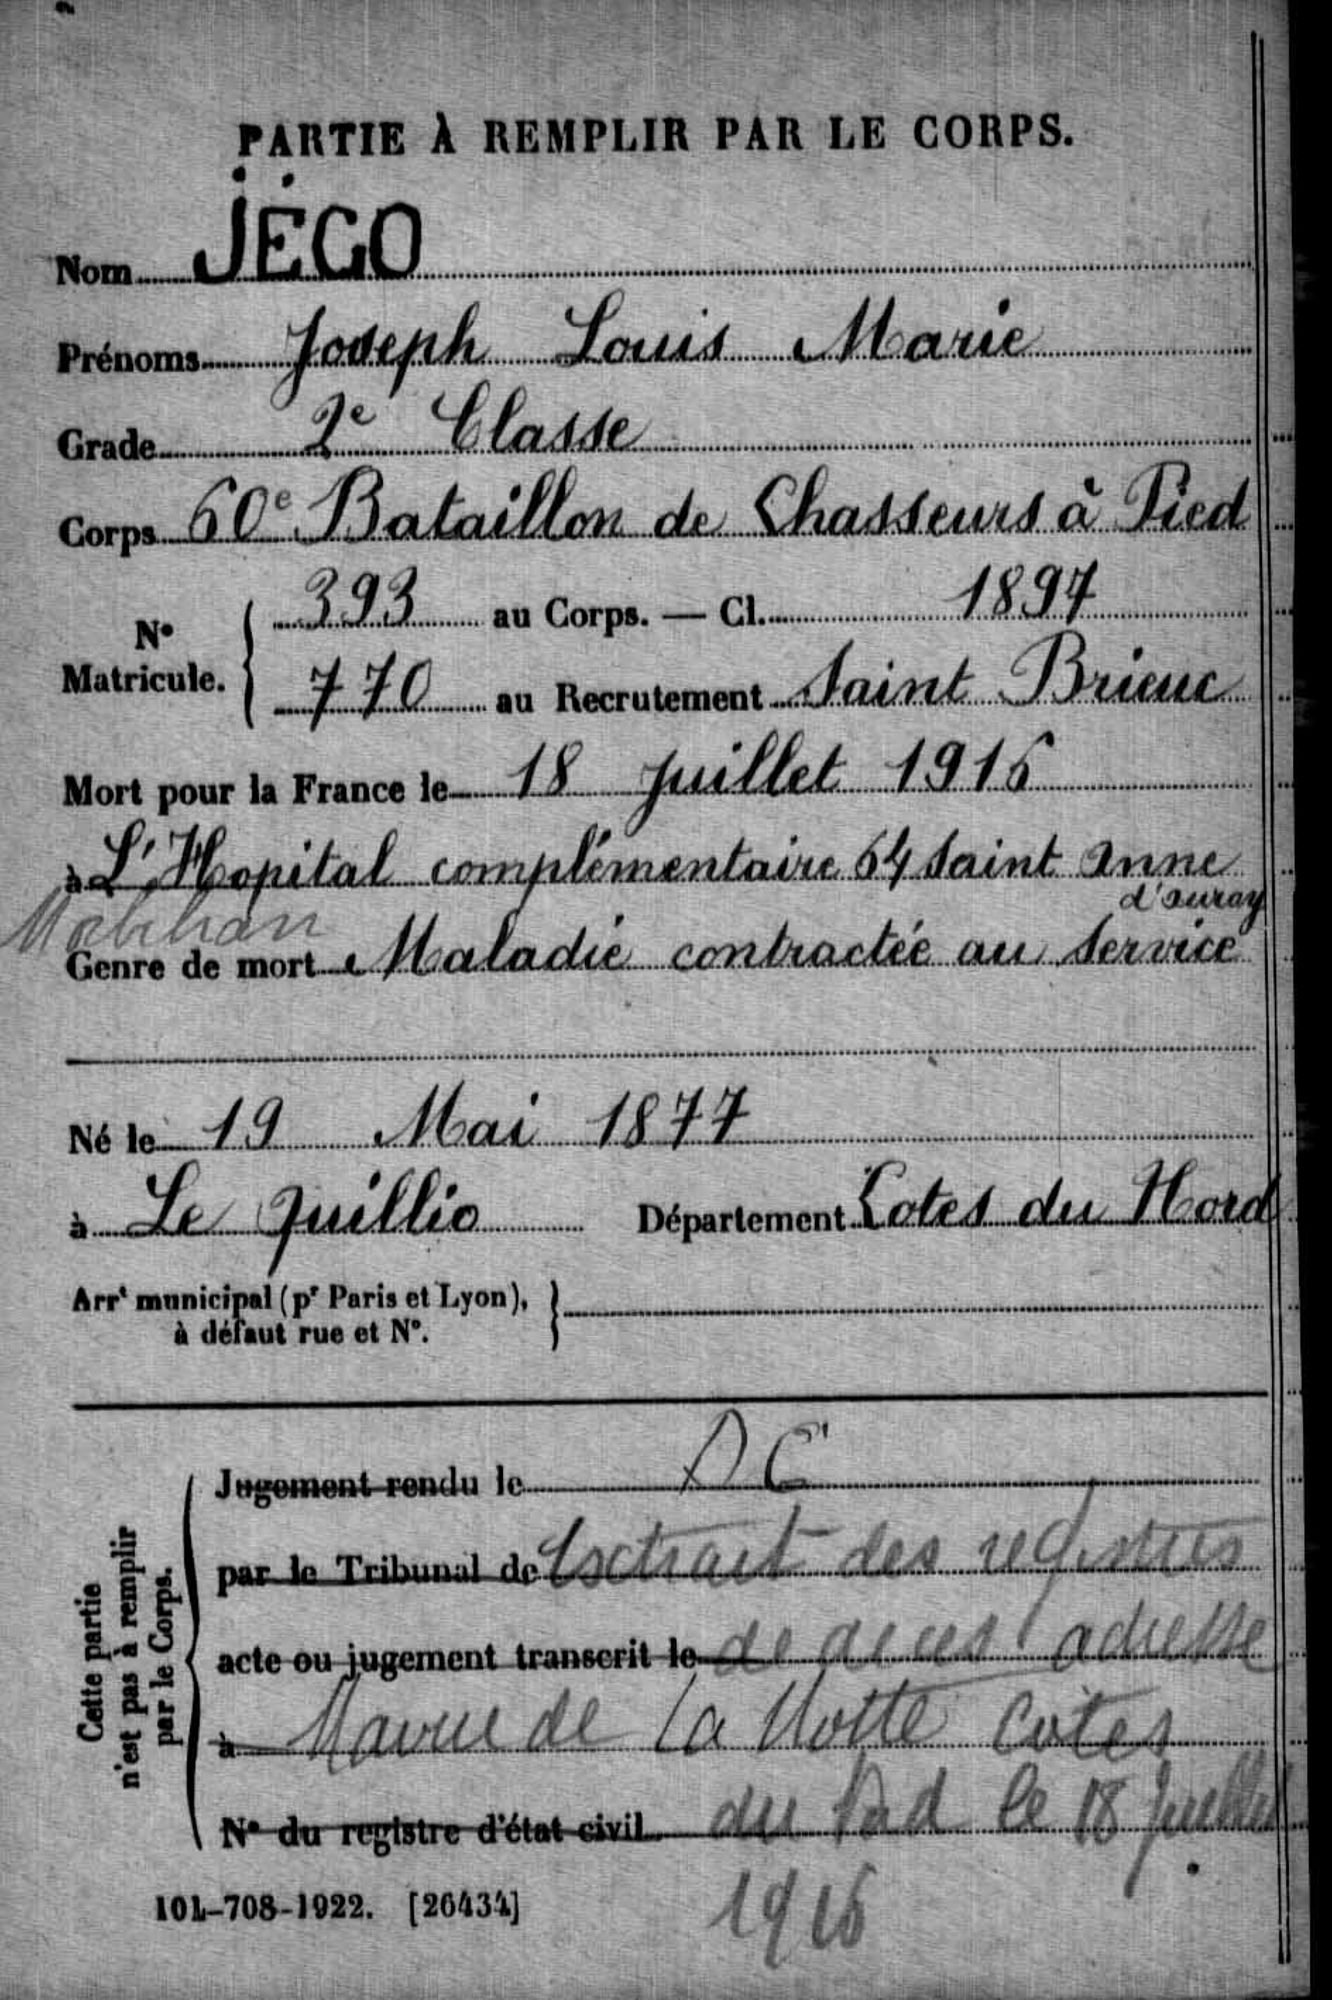 PARTIE À REMPLIR PAR LE CORPS.
Nom JÉGO
Prénoms Joseph Louis Marie
Grade 2e Classe
Corps 60e Bataillon de Chasseurs à Pied
N° Matricule. 393 au Corps. — Cl. 1897
770 au Recrutement Saint Brieuc
Mort pour la France le 18 Juillet 1916
à L'Hopital complémentaire 64 Saint Anne
d'auray
Morbihan
Genre de mort Maladie contractée au Service
Né le 19 Mai 1877
à Le Quillio Département Cotes du Nord
Arrt municipal (pr Paris et Lyon),
à défaut rue et N°.
Cette partie
n'est pas à remplir
par le Corps.
Jugement rendu le A C
par le Tribunal de Extrait des registres
acte ou jugement transcrit le de deces adresse
à Mairie de La Motte Cotes
N° du registre d'état civil du Nord le 18 Juillet
1916
101-708-1922. [26434]